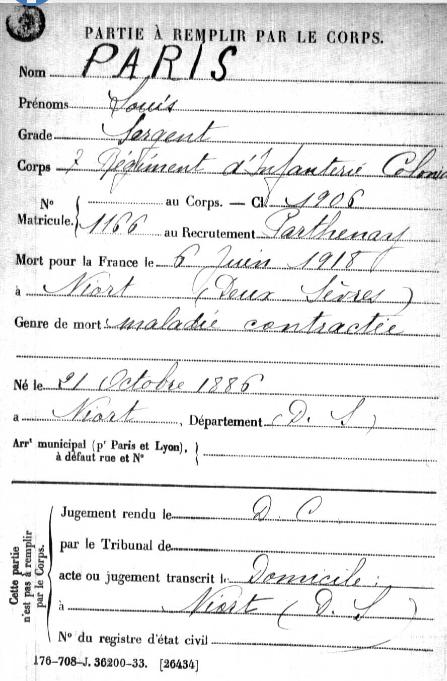 PARTIE À REMPLIR PAR LE CORPS.
Nom PARIS
Prénoms Louis
Grade Sergent
Corps 7 Régiment d'Infanterie Colonia
N° au Corps. — Cl. 1906
Matricule. 1166 au Recrutement Parthenay
Mort pour la France le 6 Juin 1918
à Niort (Deux Sèvres)
Genre de mort maladie contractée
Né le 21 Octobre 1886
a Niort, Département (D. S)
Arrt municipal (pr Paris et Lyon),
à défaut rue et N°
Cette partie n'est pas à remplir par le Corps.
Jugement rendu le D. C
par le Tribunal de
acte ou jugement transcrit le Domicile :
à Niort (D. S)
N° du registre d'état civil
176-708-J. 36200-33. [26434]